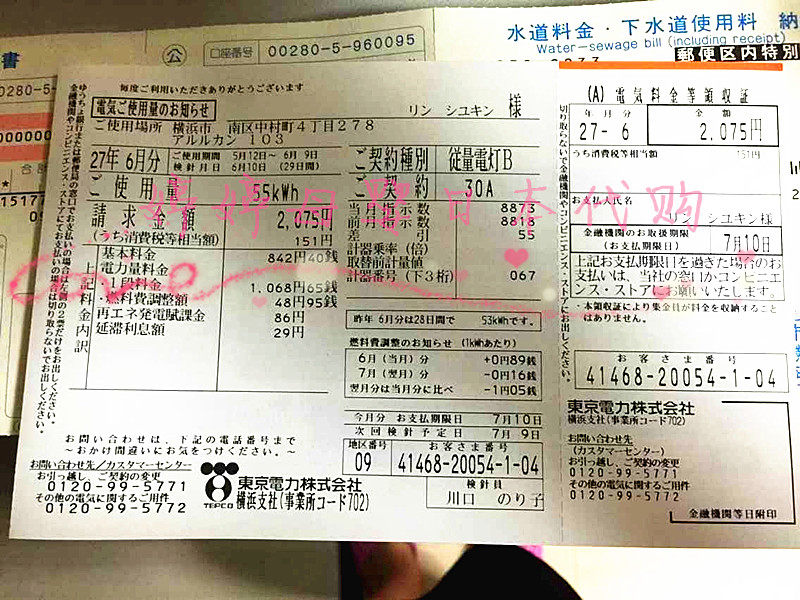 水道料金・下水道使用料 納
Water-sewage bill (including receipt)
郵便区内特別
書
公
口座番号 00280-5-960095
00280-5
000000
毎度ご利用いただきありがとうございます
電気ご使用量のお知らせ
リン シユキン 様
ご使用場所 横浜市 南区中村町4丁目278
アルルカン 103
27年 6月分
ご使用期間 5月12日～ 6月 9日
検針月日 6月10日 (29日間)
ご使用量 55kWh
請求金額 2,075円
(うち消費税等相当額) 151円
上記料金内訳
基本料金 842円40銭
電力量料金
・1段料金 1,068円65銭
・燃料費調整額 48円95銭
再エネ発電賦課金 86円
延滞利息額 29円
ご契約種別 従量電灯B
ご契約 30A
当月指示数 8873
前月指示数 8818
差引 55
計器乗率(倍)
取替前計量値
計器番号(下3桁) 067
昨年 6月分は28日間で 53kWhです。
燃料費調整のお知らせ(1kWhあたり)
6月(当月)分 +0円89銭
7月(翌月)分 -0円16銭
翌月分は当月分に比べ -1円05銭
今月分 お支払期限日 7月10日
次回検針予定日 7月 9日
地区番号 お客さま番号
09 41468-20054-1-04
検針員
川口 のり子
お問い合わせは、下記の電話番号まで
～おかけ間違いにお気をつけください。～
お問い合わせ先/カスタマーセンター
お引っ越し、ご契約の変更
0120-99-5771
その他の電気に関するご用件
0120-99-5772
TEPCO
東京電力株式会社
横浜支社(事業所コード702)
(A) 電気料金等領収証
年・月 金額
27-6 2,075円
うち消費税等相当額 151円
お支払人氏名
リン シユキン様
金融機関のお取扱期限
(お支払期限日) 7月10日
上記お支払期限日を過ぎた場合のお
支払いは、当社の窓口かコンビニエ
ンス・ストアにお願いいたします。
・本領収証により集金員が料金を収納すること
はありません。
お客さま番号
41468-20054-1-04
東京電力株式会社
横浜支社(事業所コード702)
お問い合わせ先
(カスタマーセンター)
お引っ越し、ご契約の変更
0120-99-5771
その他の電気に関するご用件
0120-99-5772
金融機関等日附印
日本代购